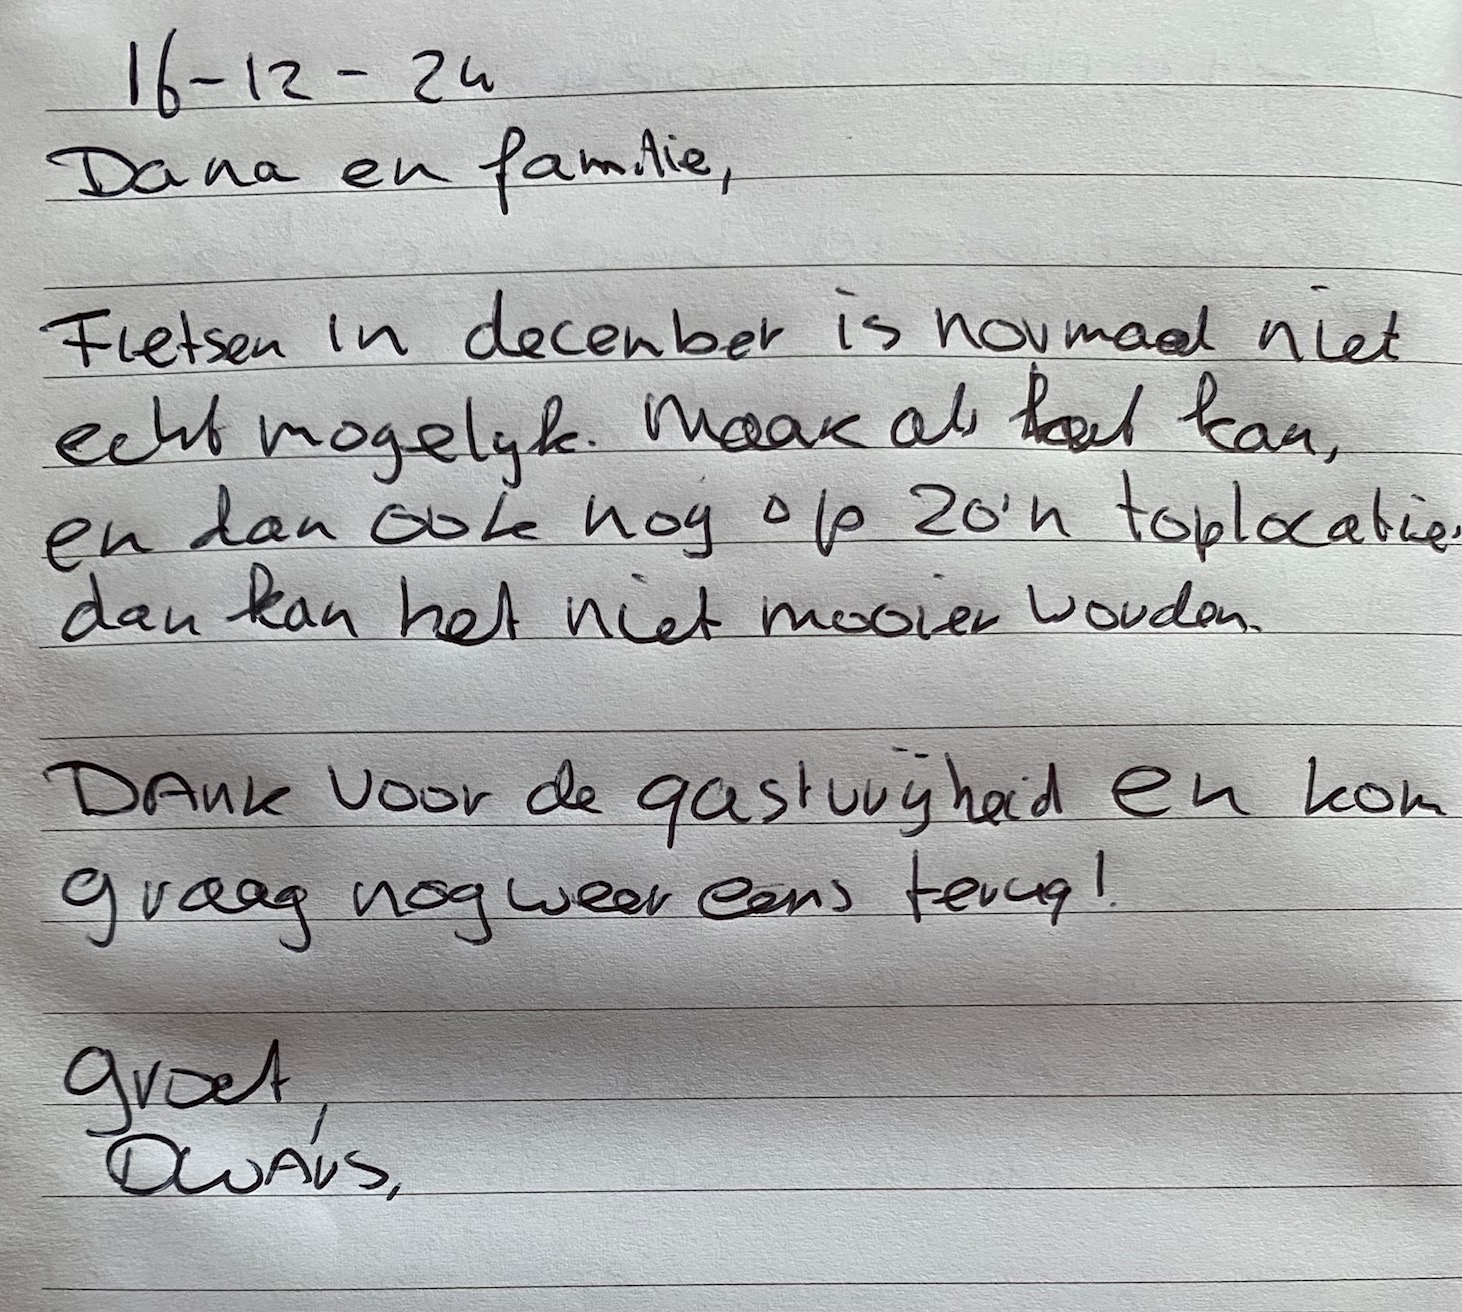 16-12-24
Dana en familie,
Fietsen in december is normaal niet
echt mogelijk. Maar als het kan,
en dan ook nog op zo'n toplocatie,
dan kan het niet mooier worden.
DAnk voor de gastvrijheid en kom
graag nog weer eens terug!
groet,